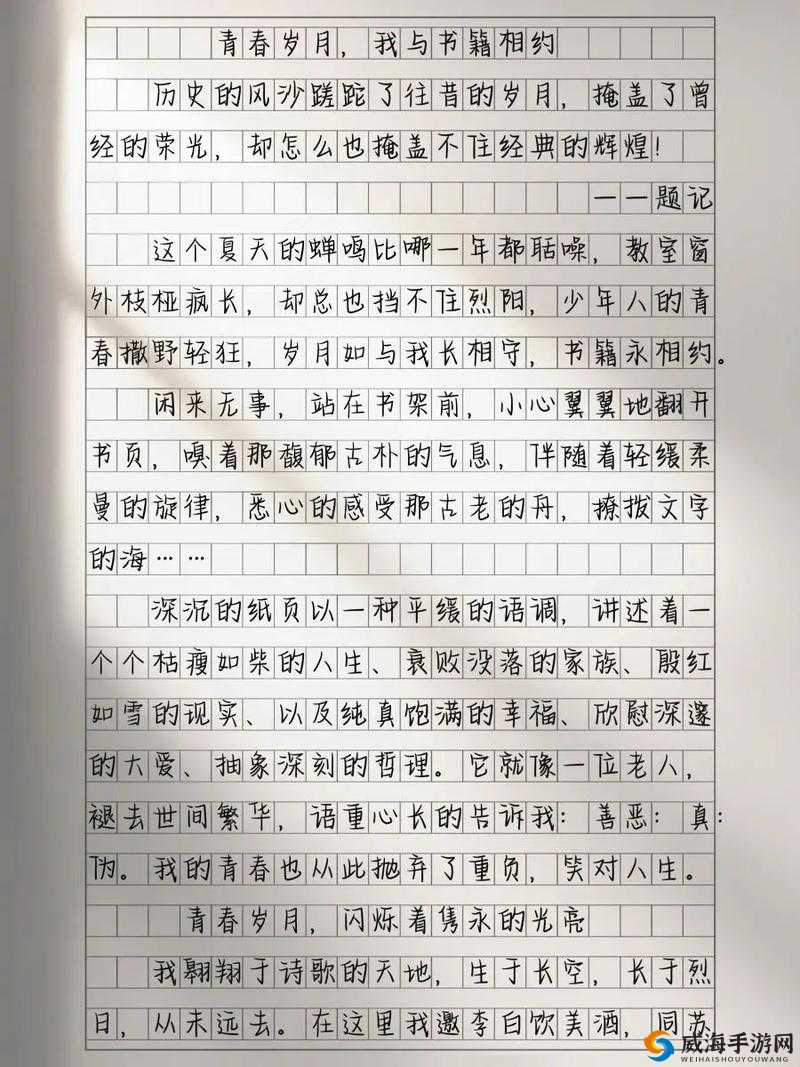 青春岁月，我与书籍相约
历史的风沙蹉跎了往昔的岁月，掩盖了曾
经的荣光，却怎么也掩盖不住经典的辉煌！
——题记
这个夏天的蝉鸣比哪一年都聒噪，教室窗
外枝桠疯长，却总也挡不住烈阳，少年人的青
春撒野轻狂，岁月如与我长相守，书籍永相约。
闲来无事，站在书架前，小心翼翼地翻开
书页，嗅着那馥郁古朴的气息，伴随着轻缓柔
曼的旋律，悉心的感受那古老的舟，撩拨文字
的海……
深沉的纸页以一种平缓的语调，讲述着一
个个枯瘦如柴的人生、衰败没落的家族、殷红
如雪的现实、以及纯真饱满的幸福、欣慰深邃
的大爱、抽象深刻的哲理。它就像一位老人，
褪去世间繁华，语重心长的告诉我：善恶：真：
伪。我的青春也从此抛弃了重负，笑对人生。
青春岁月，闪烁着隽永的光亮
我翱翔于诗歌的天地，生于长空，长于烈
日，从未远去。在这里我邀李白饮美酒，同苏
威海手游网
WEIHAISHOUYOUWANG